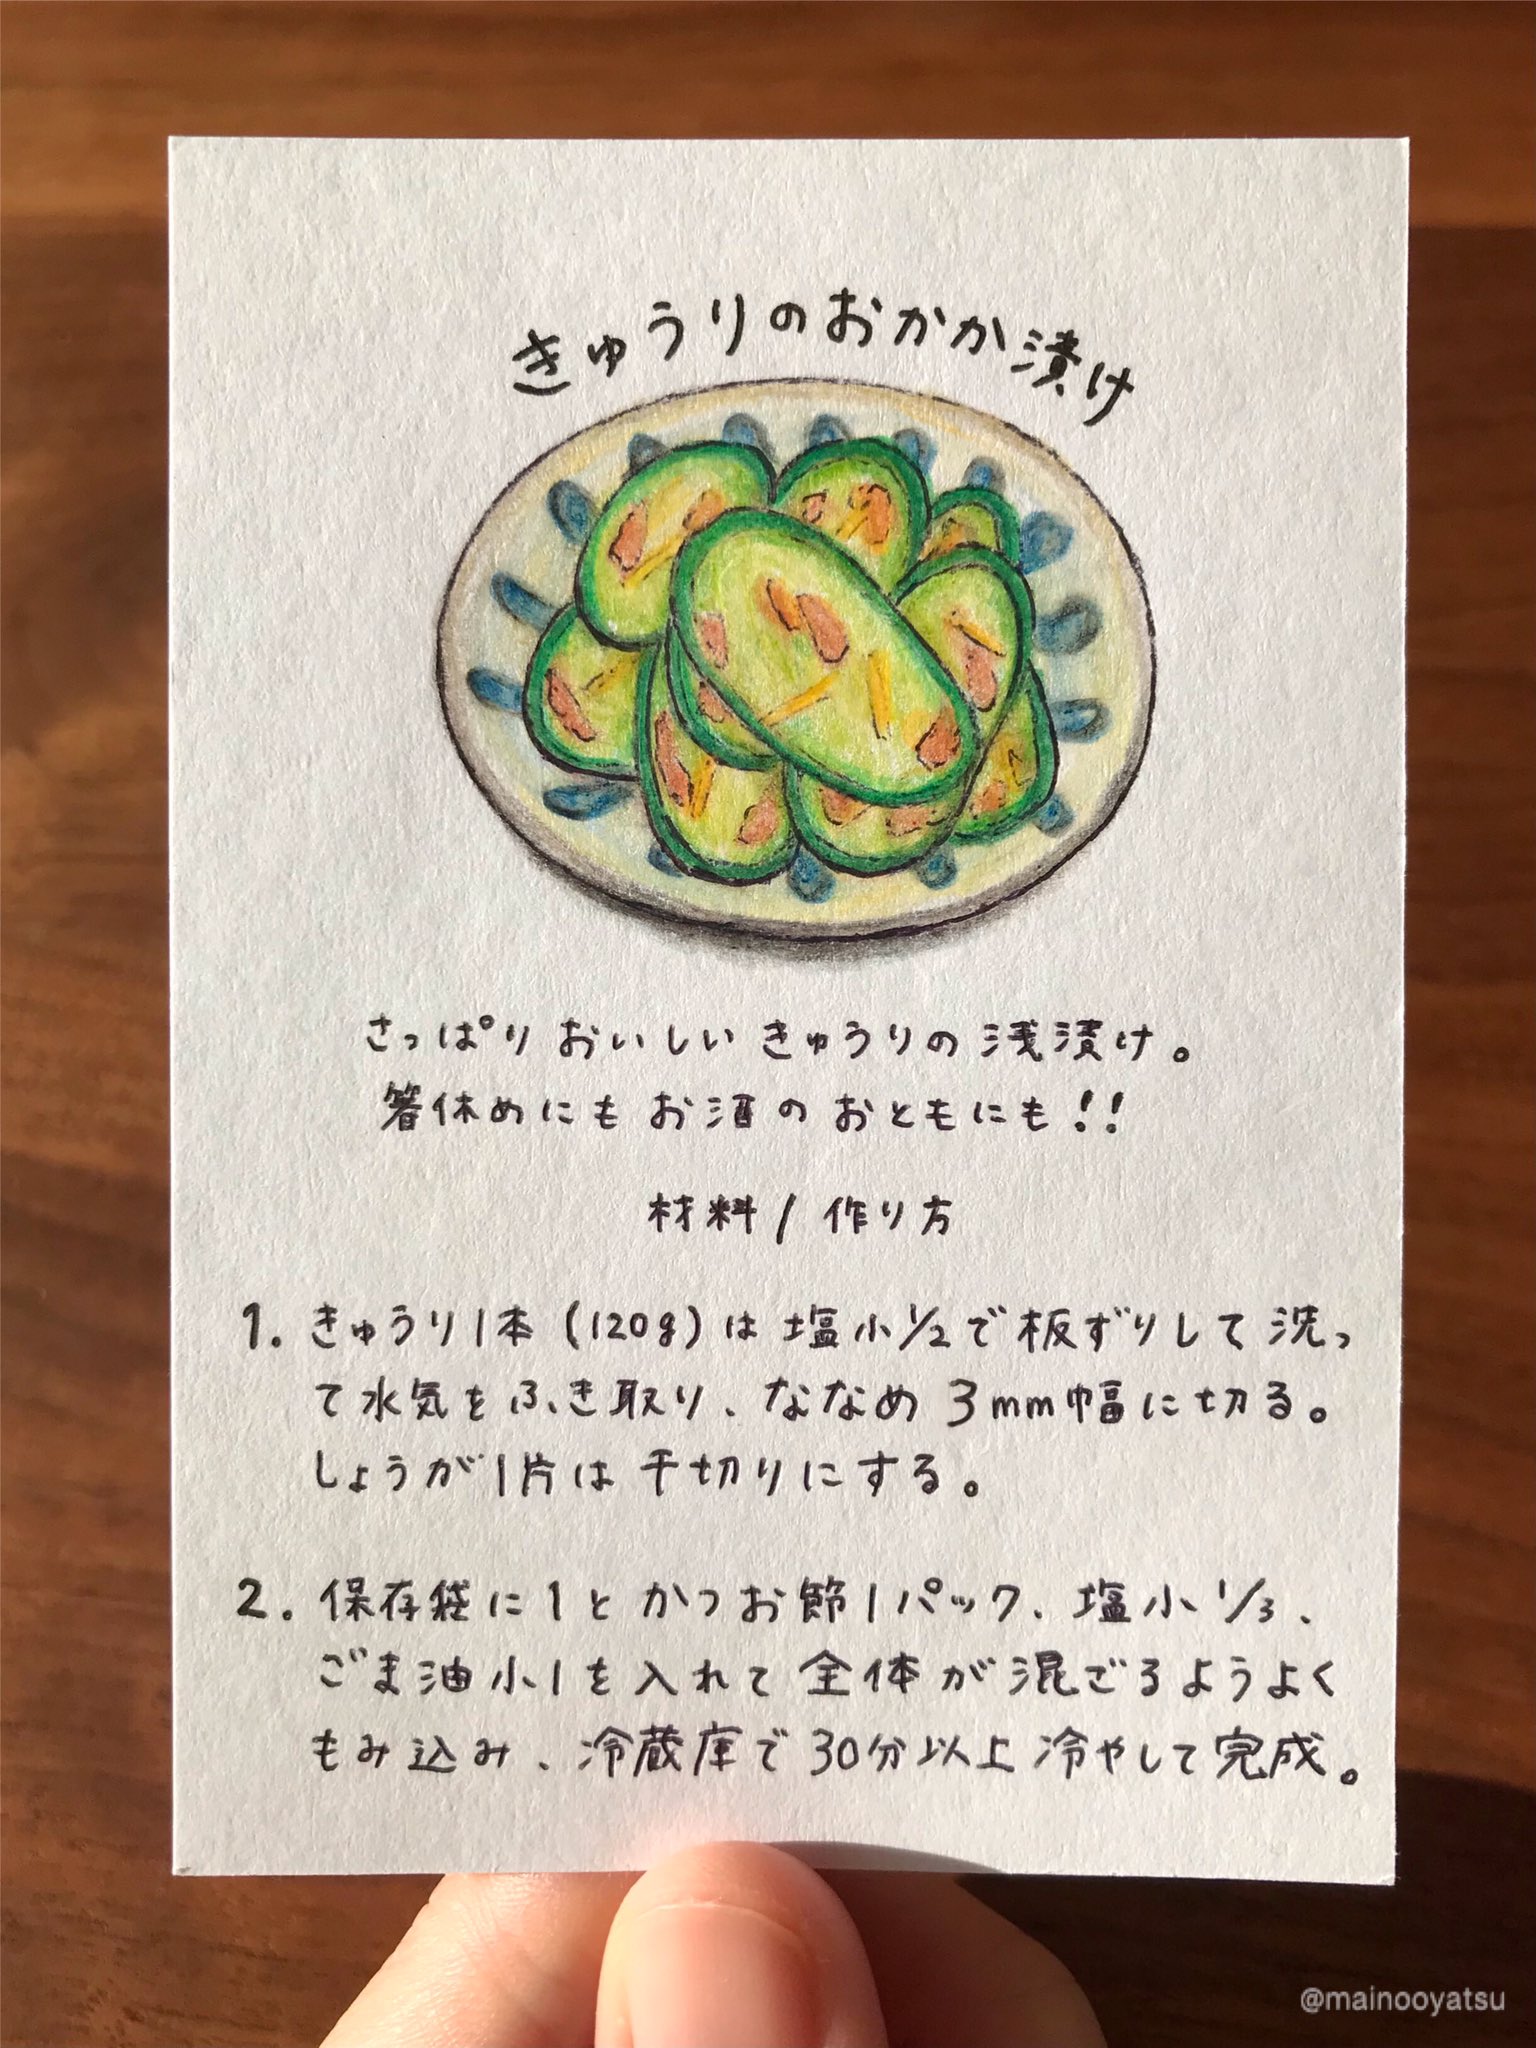 きゅうりのおかか漬け
さっぱりおいしいきゅうりの浅漬け。
箸休めにもお酒のおともにも!!
材料/作り方
1. きゅうり1本(120g)は塩小1/2で板ずりして洗っ
て水気をふき取り、ななめ3mm幅に切る。
しょうが1片は千切りにする。
2. 保存袋に1とかつお節1パック、塩小1/3、
ごま油小1を入れて全体が混ざるようよく
もみ込み、冷蔵庫で30分以上冷やして完成。
@mainooyatsu